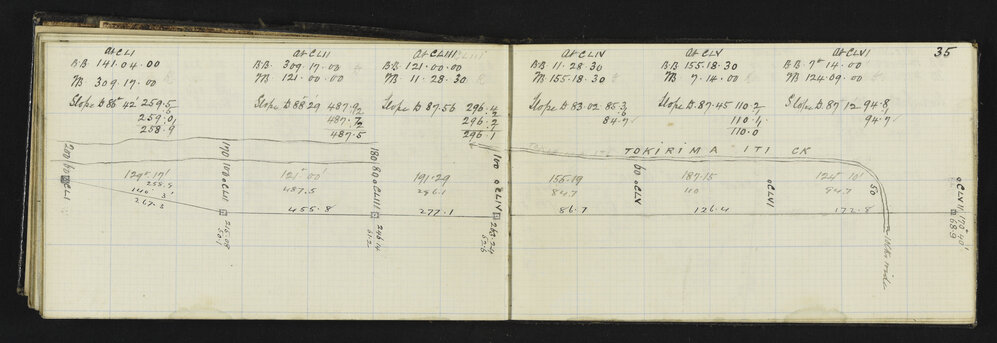 35
At CLI
BB 141.04.00
FB 309.17.00
Slope D 88° 42 259.5
259.0
258.9
At CLII
BB 309.17.00
FB 121.00.00
Slope D 88° 29 487.9
487.7
487.5
At CLIII
BB 121.00.00
FB 11.28.30
Slope D 87.56 296.4
296.2
296.1
At CLIV
BB 11.28.30
FB 155.18.30
Slope D 83.02 85.3
84.7
At CLV
BB 155.18.30
FB 7.14.00
Slope D 87.45 110.2
110.1
110.0
At CLVI
BB 7° 14.00
FB 124.09.00
Slope D 87 12 94.8
94.7
TOKIRIMA ITI CK
200
60
CLI
129° 17'
258.9
267.5
170
100
CLII
215.08
501
121° 00'
487.5
455.8
180
80
CLIII
246.14
512
191.29
296.1
277.1
100
CLIV
263.24
52.6
155.19
84.7
86.7
60
CLV
187.15
110
126.4
CLVI
124° 10'
94.7
172.8
50
CLVII
170° 40'
689